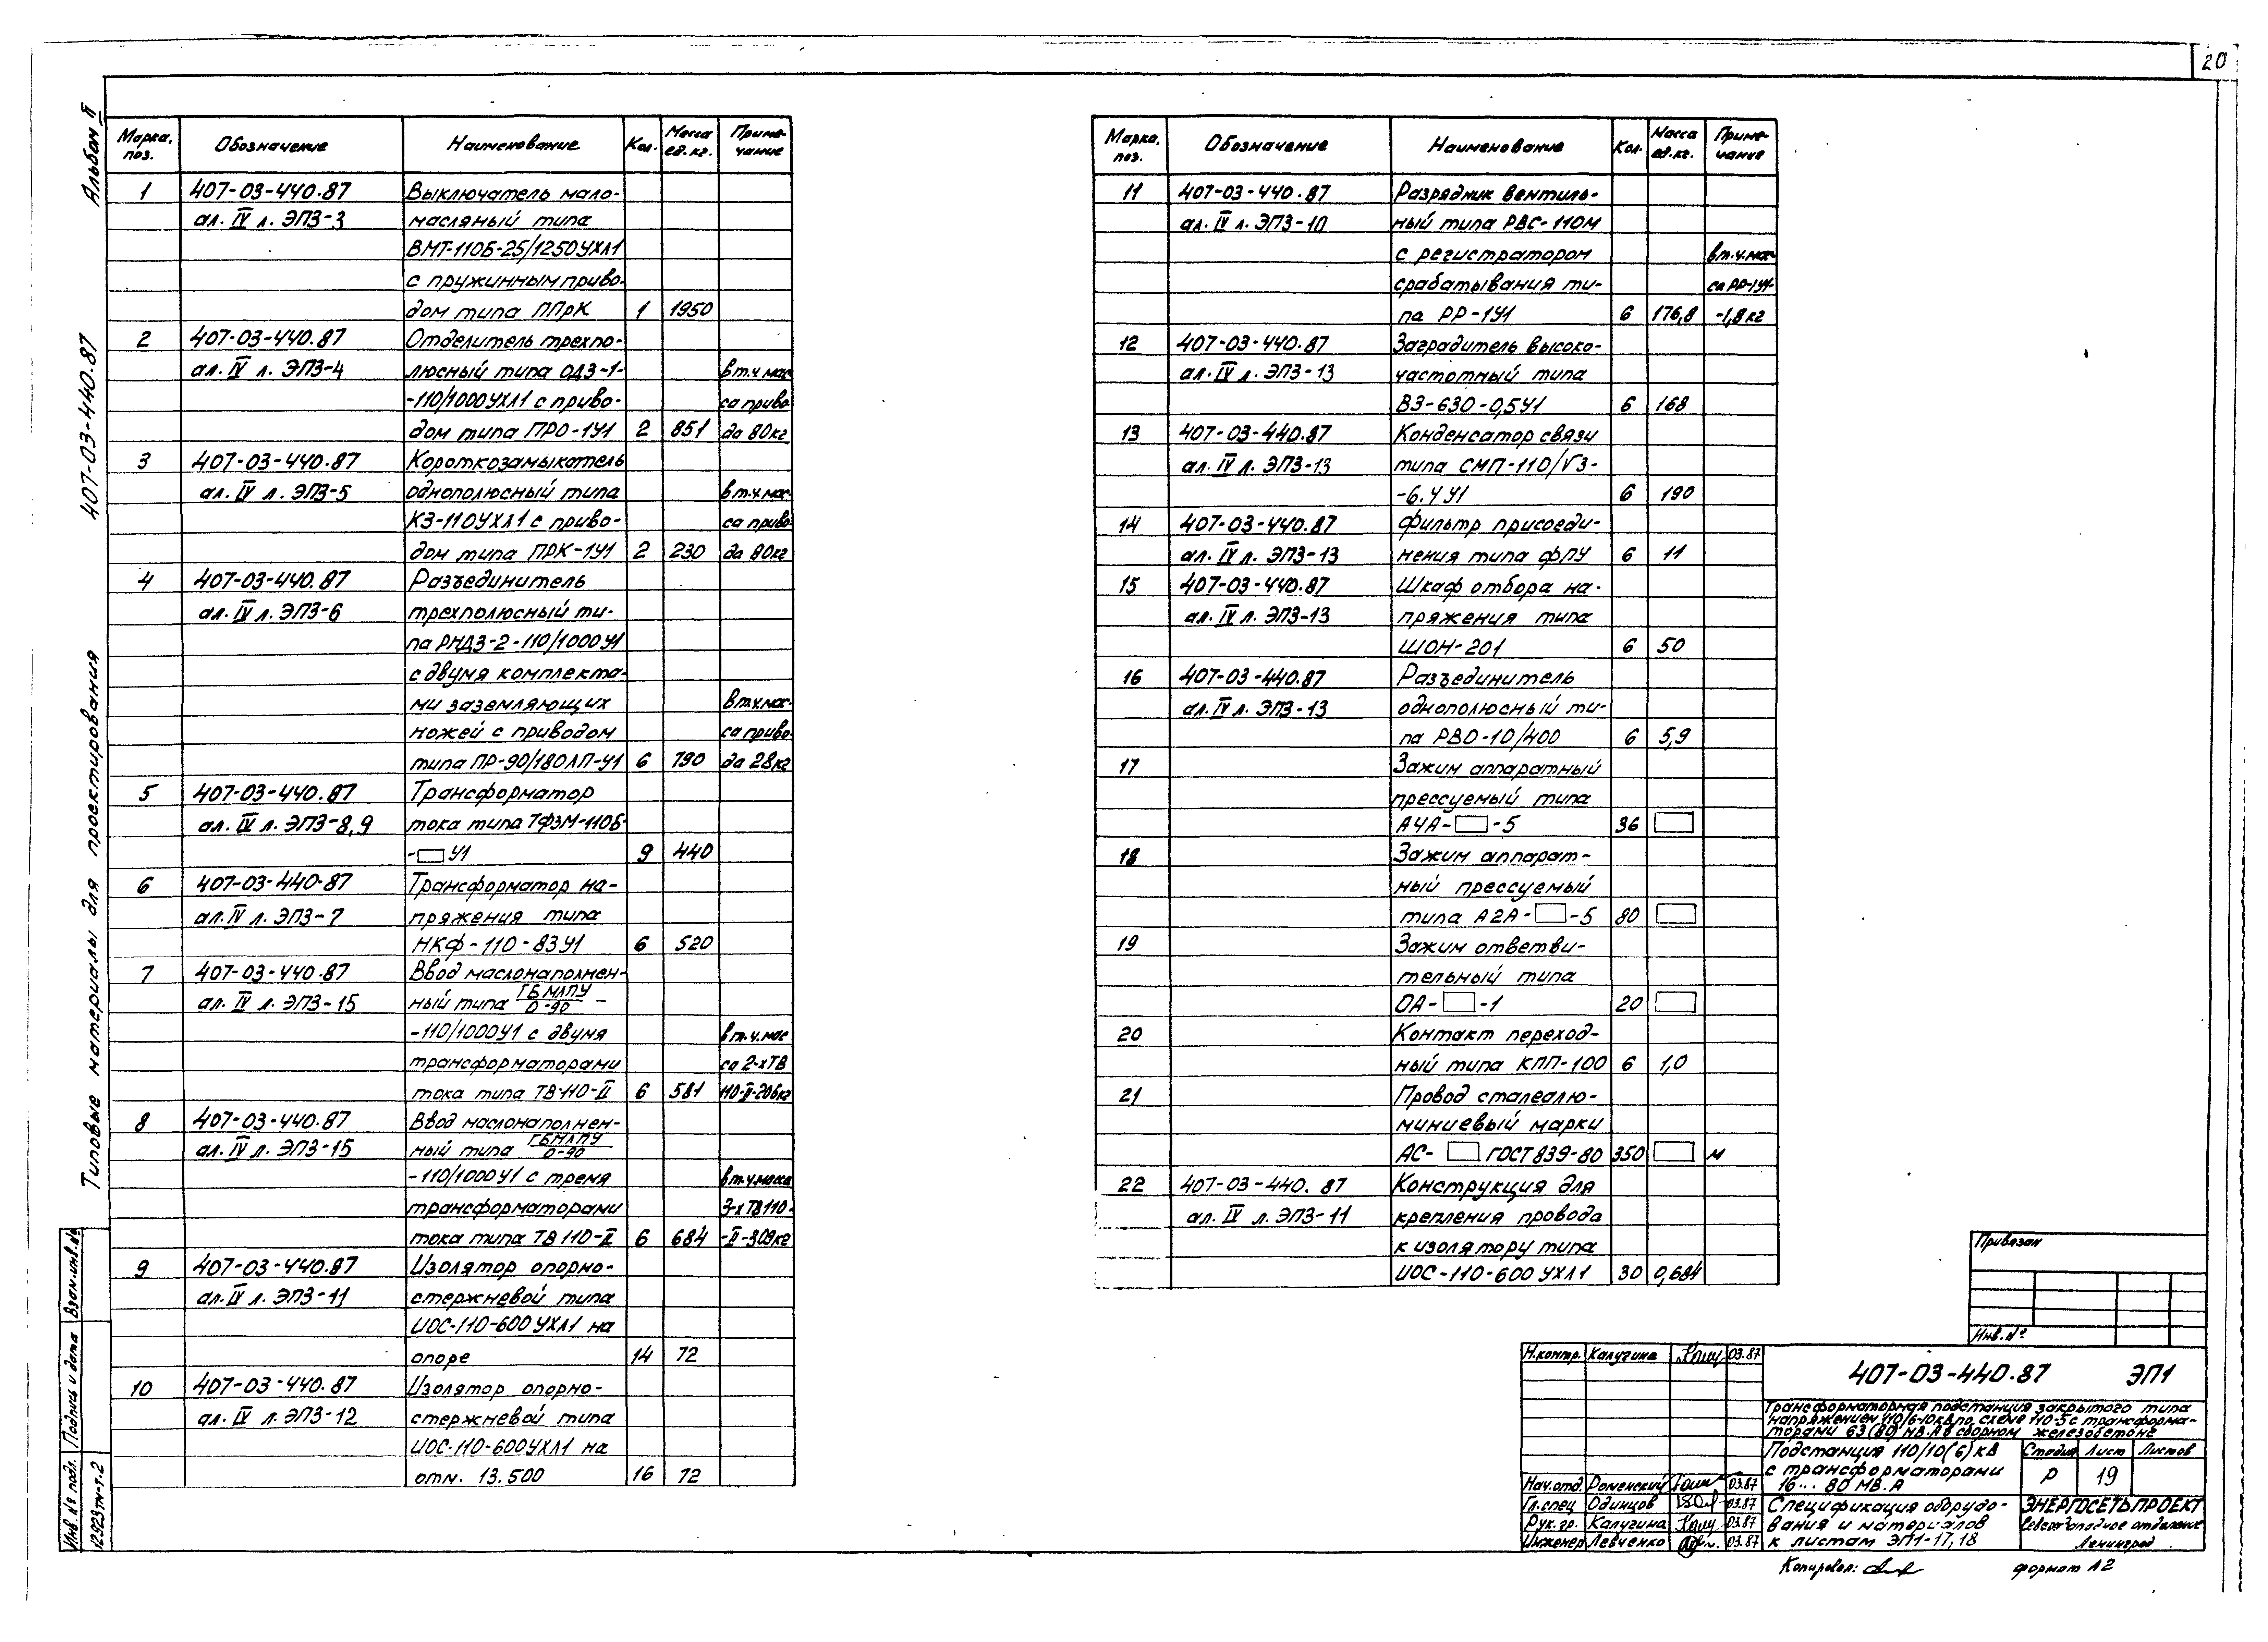 20
Альбом II
407-03-440.87
Типовые материалы для проектирования
Марка, поз. Обозначение Наименование Кол. Масса ед.кг. Приме-чание
1 407-03-440.87 Выключатель мало-
ал. IV л. ЭП3-3 масляный типа
ВМТ-110Б-25/1250УХЛ1
с пружинным приво-
дом типа ППрК 1 1950
2 407-03-440.87 Отделитель трехпо-
ал. IV л. ЭП3-4 люсный типа ОДЗ-1- в т.ч. мас-
-110/1000УХЛ1 с приво- са приво-
дом типа ПРО-1У1 2 851 да 80кг
3 407-03-440.87 Короткозамыкатель
ал. IV л. ЭП3-5 однополюсный типа в т.ч. мас-
КЗ-110УХЛ1 с приво- са приво-
дом типа ПРК-1У1 2 230 да 80кг
4 407-03-440.87 Разъединитель
ал. IV л. ЭП3-6 трехполюсный ти-
па РНДЗ-2-110/1000У1
с двумя комплекта-
ми заземляющих в т.ч. мас-
ножей с приводом са приво-
типа ПР-90/180ЛП-У1 6 790 да 28кг
5 407-03-440.87 Трансформатор
ал. IV л. ЭП3-8,9 тока типа ТФЗМ-110Б-
-□ У1 9 440
6 407-03-440-87 Трансформатор на-
ал. IV л. ЭП3-7 пряжения типа
НКФ-110-83У1 6 520
7 407-03-440.87 Ввод маслонаполнен-
ал. IV л. ЭП3-15 ный типа ГБМЛПУ/0-90 -
-110/1000У1 с двумя в т.ч. мас
трансформаторами са 2-х ТВ
тока типа ТВ-110-II 6 581 110-II-206кг
8 407-03-440.87 Ввод маслонаполнен-
ал. IV л. ЭП3-15 ный типа ГБМЛПУ/0-90
-110/1000У1 с тремя в т.ч. масса
трансформаторами 3-х ТВ110-
тока типа ТВ 110-II 6 684 -II-309кг
9 407-03-440.87 Изолятор опорно-
ал. IV л. ЭП3-11 стержневой типа
ИОС-110-600УХЛ1 на
опоре 14 72
10 407-03-440.87 Изолятор опорно-
ал. IV л. ЭП3-12 стержневой типа
ИОС-110-600УХЛ1 на
отм. 13.500 16 72
Марка, поз. Обозначение Наименование Кол. Масса ед.кг. Приме-чание
11 407-03-440.87 Разрядник вентиль-
ал. IV л. ЭП3-10 ный типа РВС-110М
с регистратором в т.ч. мас-
срабатывания ти- са РР-1У1-
па РР-1У1 6 176,8 -1,8кг
12 407-03-440.87 Заградитель высоко-
ал. IV л. ЭП3-13 частотный типа
ВЗ-630-0,5У1 6 168
13 407-03-440.87 Конденсатор связи
ал. IV л. ЭП3-13 типа СМП-110/√3-
-6.4У1 6 190
14 407-03-440.87 Фильтр присоеди-
ал. IV л. ЭП3-13 нения типа ФПУ 6 11
15 407-03-440.87 Шкаф отбора на-
ал. IV л. ЭП3-13 пряжения типа
ШОН-201 6 50
16 407-03-440.87 Разъединитель
ал. IV л. ЭП3-13 однополюсный ти-
па РВО-10/400 6 5,9
17 Зажим аппаратный
прессуемый типа
А4А-□-5 36 □
18 Зажим аппарат-
ный прессуемый
типа А2А-□-5 80 □
19 Зажим ответви-
тельный типа
ОА-□-1 20 □
20 Контакт переход-
ный типа КПП-100 6 1,0
21 Провод сталеалю-
миниевый марки
АС-□ ГОСТ 839-80 350 □ м
22 407-03-440.87 Конструкция для
ал. IV л. ЭП3-11 крепления провода
к изолятору типа
ИОС-110-600 УХЛ1 30 0,684
Привязан
Инв. №
Н.контр. Калугина 03.87
Нач.отд. Роменский 03.87
Гл.спец Одинцов 03.87
Рук.гр. Калугина 03.87
Инженер Левченко 03.87
407-03-440.87 ЭП1
Трансформаторная подстанция закрытого типа
напряжением 110/6-10кВ по схеме 110-5 с трансформа-
торами 63(80) МВ.А в сборном железобетоне
Подстанция 110/10(6) кВ
с трансформаторами
16...80 МВ.А
Стадия Лист Листов
Р 19
Спецификация оборудо-
вания и материалов
к листам ЭП1-17,18
ЭНЕРГОСЕТЬПРОЕКТ
Северо-Западное отделение
Ленинград
Копировал:
формат А2
Взам.инв.№
Подпись и дата
Инв.№ подл.
12923тм-т-2